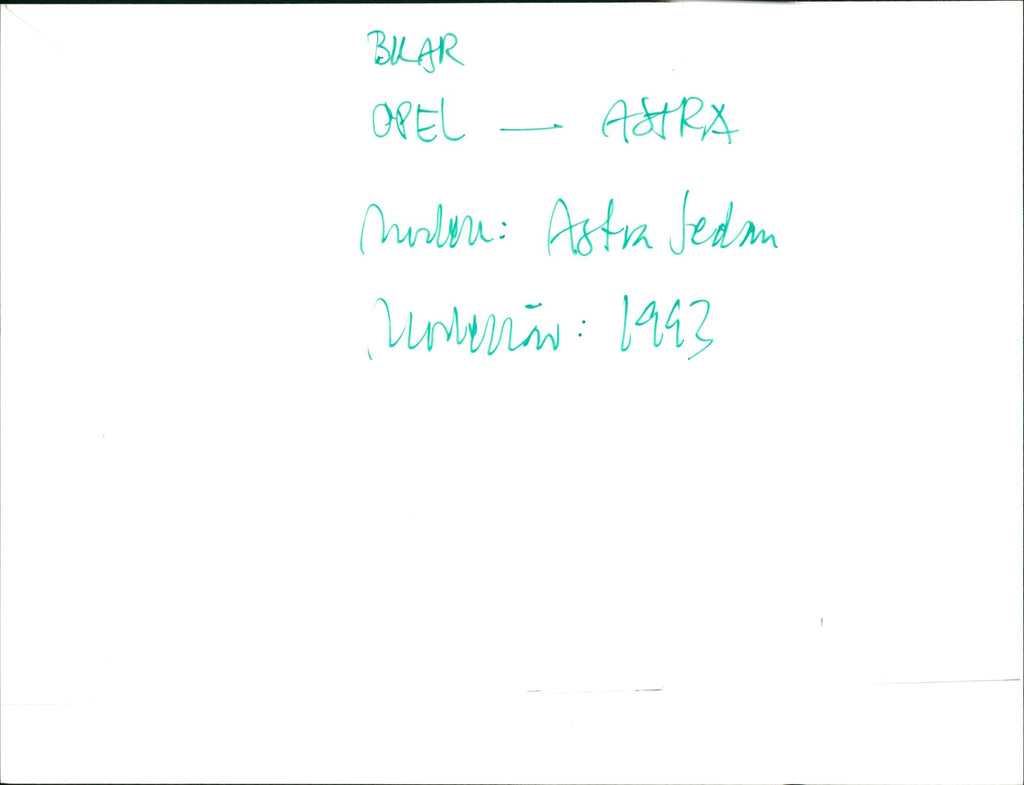 BILAR
OPEL — ASTRA
Modell: Astra Sedan
Modellår: 1993